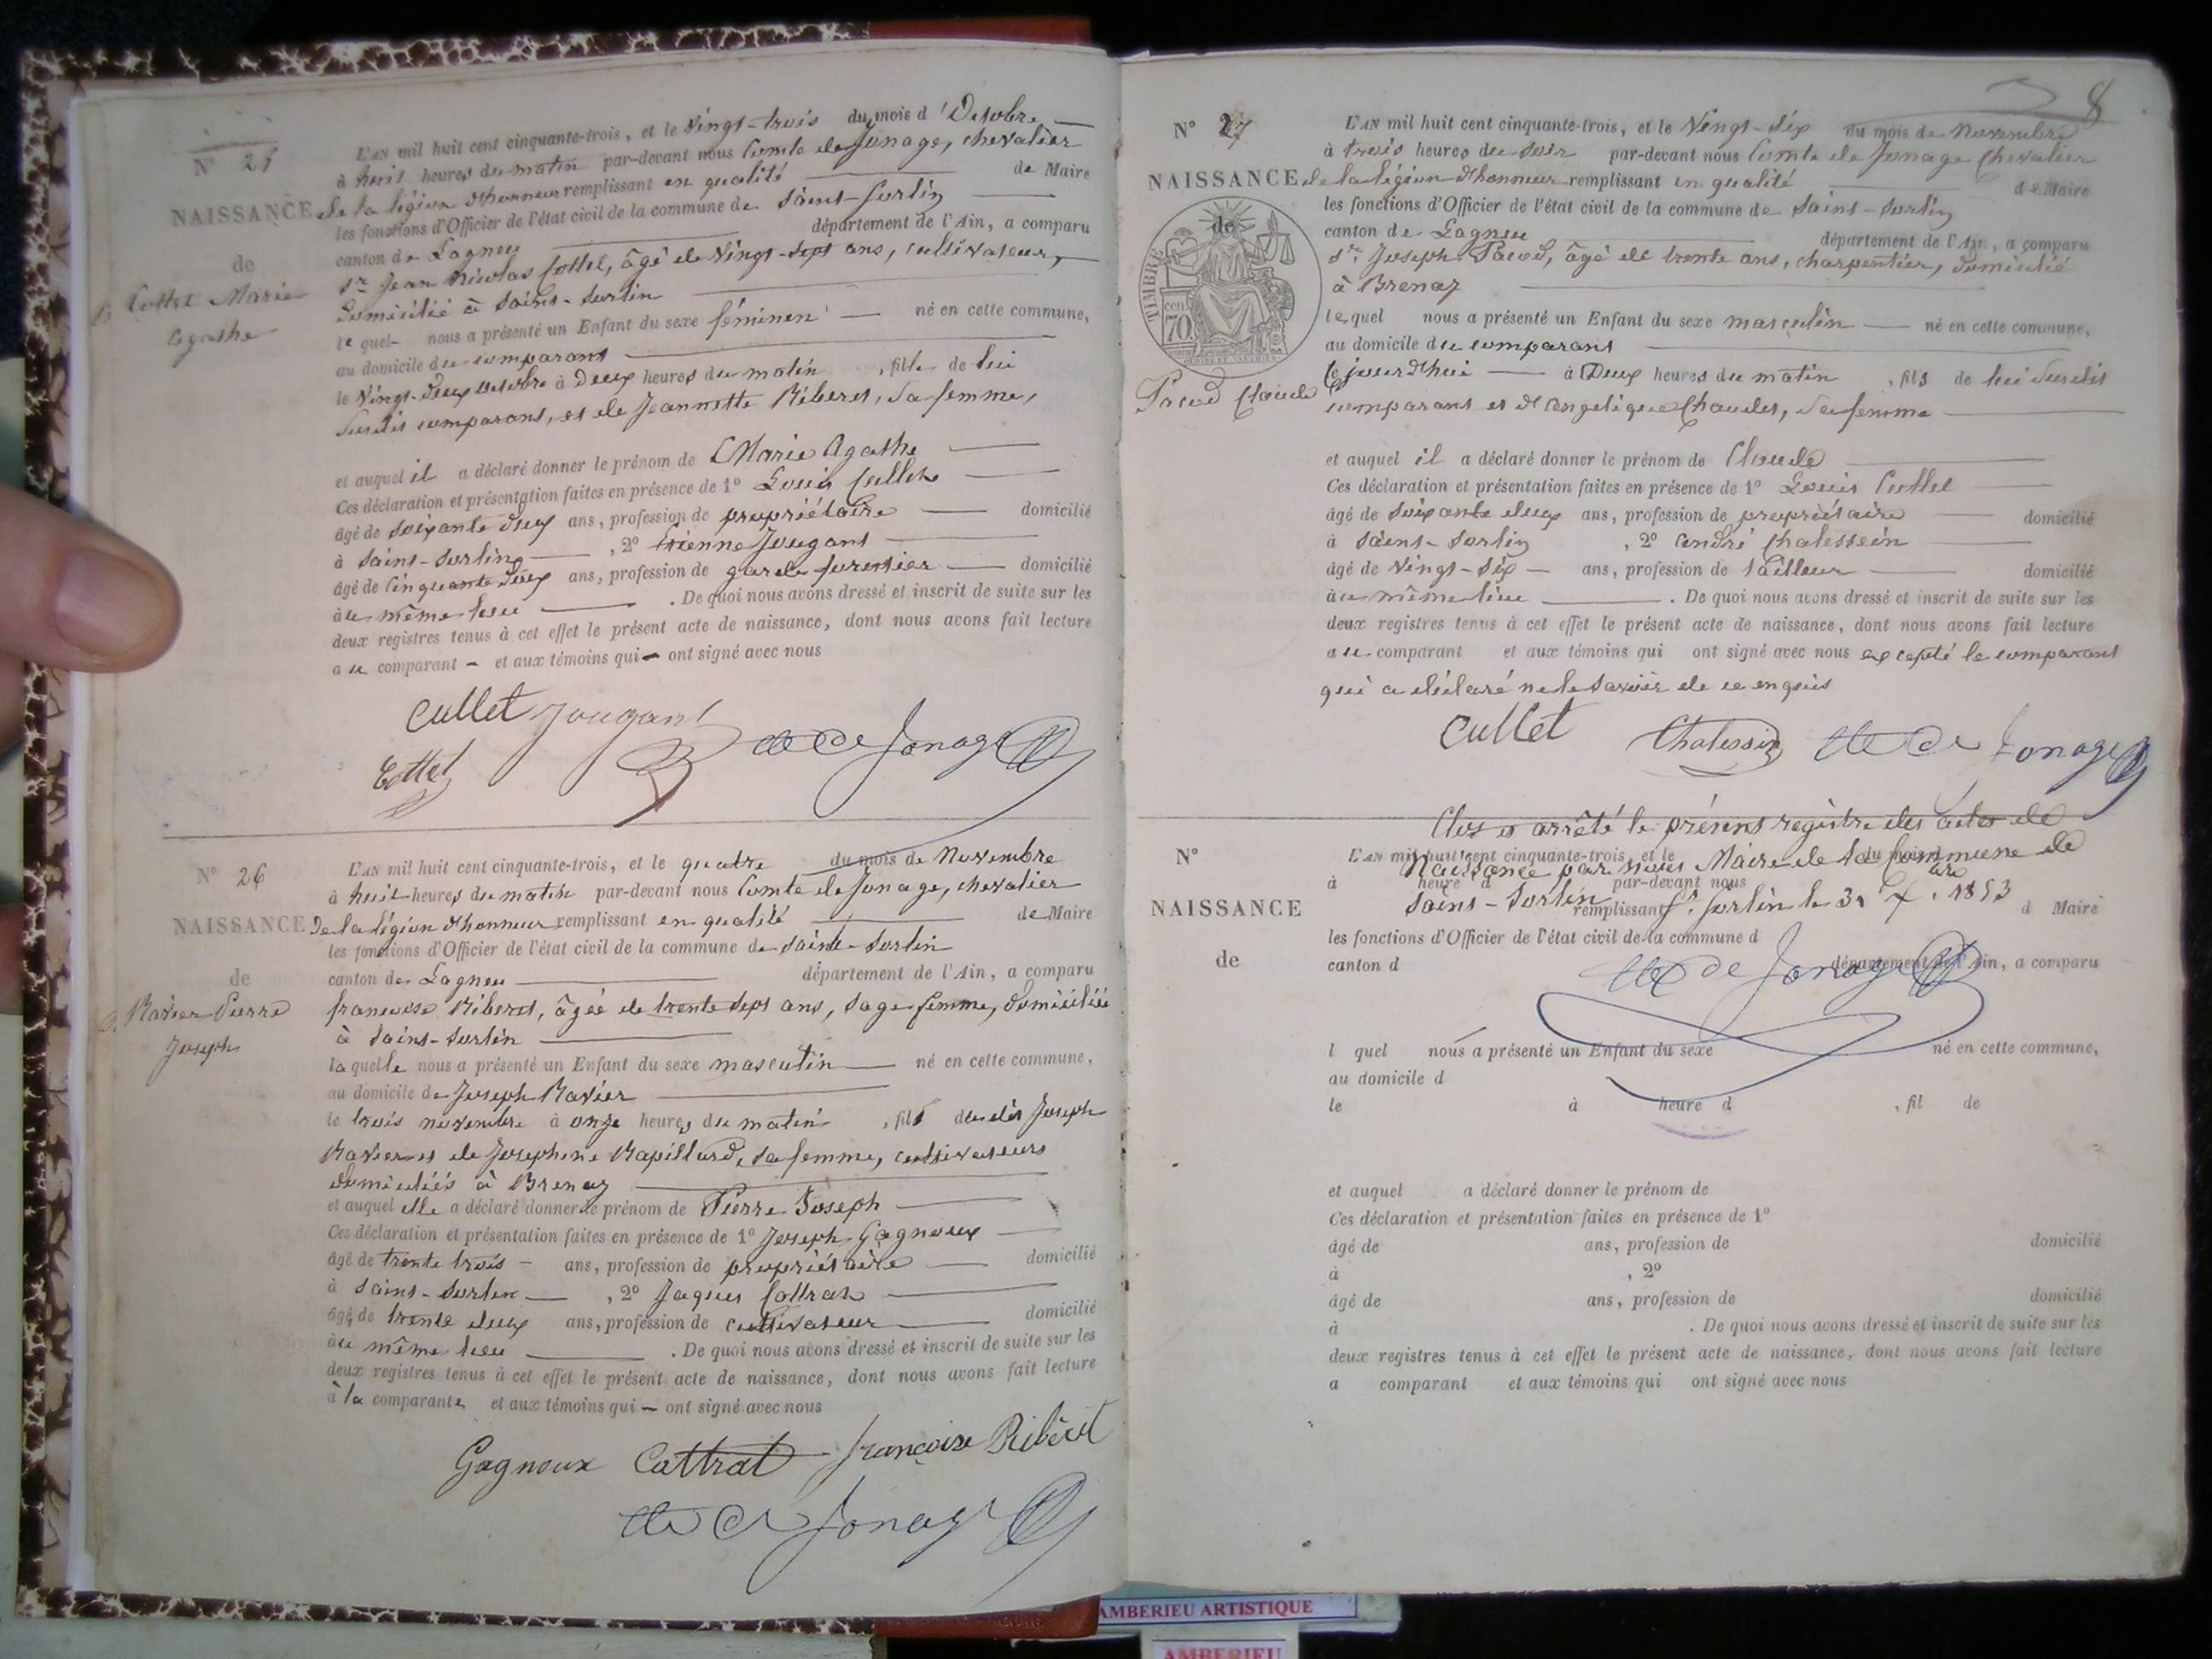 N° 25
NAISSANCE
de
Cottet Marie
Agathe
L'AN mil huit cent cinquante-trois, et le vingt-trois du mois d'Octobre
à huit heures du matin par-devant nous Comte de Jonage, chevalier
de la légion d'honneur remplissant en qualité de Maire
les fonctions d'Officier de l'état civil de la commune de Saint-Sorlin
canton de Lagneu département de l'Ain, a comparu
Sr Jean Nicolas Cottet, âgé de vingt-sept ans, cultivateur,
domicilié à Saint-Sorlin
lequel nous a présenté un Enfant du sexe féminin né en cette commune,
au domicile du comparant
le vingt-deux octobre à deux heures du matin, fille de lui
susdit comparant, et de Jeannette Riberet, sa femme,
et auquel il a déclaré donner le prénom de Marie Agathe
Ces déclaration et présentation faites en présence de 1° Louis Cullet
âgé de soixante deux ans, profession de propriétaire domicilié
à Saint-Sorlin, 2° Etienne Jougant
âgé de cinquante deux ans, profession de garde forestier domicilié
au même lieu. De quoi nous avons dressé et inscrit de suite sur les
deux registres tenus à cet effet le présent acte de naissance, dont nous avons fait lecture
au comparant et aux témoins qui ont signé avec nous
Cullet Jougant
Cottet Cte de Jonage
N° 26
NAISSANCE
de
Ravier Pierre
Joseph
L'AN mil huit cent cinquante-trois, et le quatre du mois de Novembre
à huit heures du matin par-devant nous Comte de Jonage, chevalier
de la légion d'honneur remplissant en qualité de Maire
les fonctions d'Officier de l'état civil de la commune de Saint-Sorlin
canton de Lagneu département de l'Ain, a comparu
françoise Riberet, âgée de trente sept ans, sage femme, domiciliée
à Saint-Sorlin
laquelle nous a présenté un Enfant du sexe masculin né en cette commune,
au domicile de Joseph Ravier
le trois novembre à onze heures du matin, fils du dit Joseph
Ravier et de Josephine Rapillard, sa femme, cultivateurs
domiciliés à Brenaz
et auquel elle a déclaré donner le prénom de Pierre Joseph
Ces déclaration et présentation faites en présence de 1° Joseph Gagnoux
âgé de trente trois ans, profession de propriétaire domicilié
à Saint-Sorlin, 2° Jaques Cottrat
âgé de trente deux ans, profession de cultivateur domicilié
au même lieu. De quoi nous avons dressé et inscrit de suite sur les
deux registres tenus à cet effet le présent acte de naissance, dont nous avons fait lecture
à la comparante et aux témoins qui ont signé avec nous
Gagnoux Cottrat françoise Ribèret
Cte de Jonage
8
N° 27
NAISSANCE
de
TIMBRE
cent
70
Pacod Claude
L'AN mil huit cent cinquante-trois, et le vingt-six du mois de Novembre
à trois heures du soir par-devant nous Comte de Jonage Chevalier
de la légion d'honneur remplissant en qualité de Maire
les fonctions d'Officier de l'état civil de la commune de Saint-Sorlin
canton de Lagneu département de l'Ain, a comparu
Sr. Joseph Pacod, âgé de trente ans, charpentier, domicilié
à Brenaz
lequel nous a présenté un Enfant du sexe masculin né en cette commune,
au domicile du comparant
le jourd'hui à deux heures du matin, fils de lui susdit
comparant et d'Angelique Chaudet, sa femme
et auquel il a déclaré donner le prénom de Claude
Ces déclaration et présentation faites en présence de 1° Louis Cullet
âgé de soixante deux ans, profession de propriétaire domicilié
à Saint-Sorlin, 2° André Chalessin
âgé de vingt-six ans, profession de tailleur domicilié
au même lieu. De quoi nous avons dressé et inscrit de suite sur les
deux registres tenus à cet effet le présent acte de naissance, dont nous avons fait lecture
au comparant et aux témoins qui ont signé avec nous excepté le comparant
qui a déclaré ne le savoir de ce enquis
Cullet Chalessin Cte de Jonage
Clos et arrêté le présent registre des actes de
Naissance par nous Maire de la Commune de
Saint-Sorlin St. Sorlin le 31 Xbre 1853
Cte de Jonage
N°
NAISSANCE
de
L'AN mil huit cent cinquante-trois, et le du mois d
à heure d par-devant nous
remplissant d Maire
les fonctions d'Officier de l'état civil de la commune d
canton d département de l'Ain, a comparu
l quel nous a présenté un Enfant du sexe né en cette commune,
au domicile d
le à heure d, fil de
et auquel a déclaré donner le prénom de
Ces déclaration et présentation faites en présence de 1°
âgé de ans, profession de domicilié
à , 2°
âgé de ans, profession de domicilié
à . De quoi nous avons dressé et inscrit de suite sur les
deux registres tenus à cet effet le présent acte de naissance, dont nous avons fait lecture
a comparant et aux témoins qui ont signé avec nous
AMBERIEU ARTISTIQUE
AMBERIEU